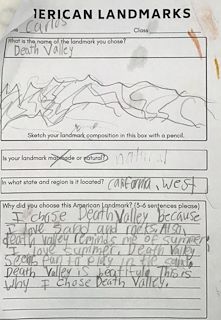 ERICAN LANDMARKS
Carlos
Class
What is the name of the landmark you chose?
Death Valley
Sketch your landmark composition in this box with a pencil.
Is your landmark manmade or natural? natural
In what state and region is it located? California, West
Why did you choose this American Landmark? (5-6 sentences please)
I chose Death Valley because
I love sand and rocks. Also,
death valley reminds me of summer.
I love summer. Death Valley
seems fun to play in the sand.
Death Valley is beatiful. This is
why I chose Death Valley.